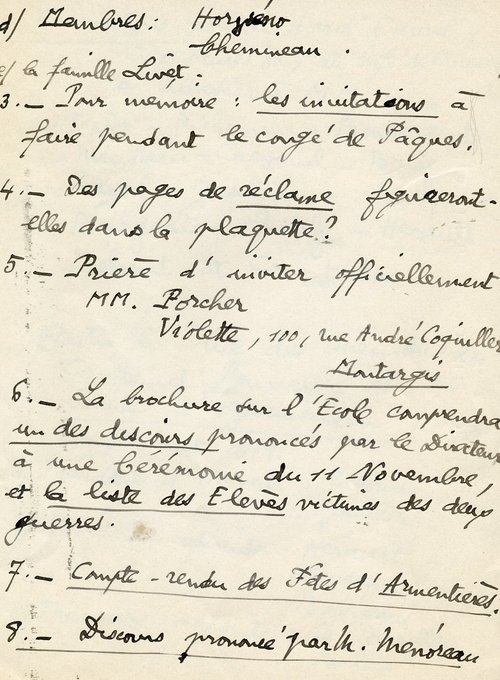 d/ Membres :
Chemineau .
e/ la famille Livet .
3._ Pour mémoire : les invitations à
faire pendant le congé de Pâques.
4._ Des pages de réclame figureront-
elles dans la plaquette ?
5._ Prière d'inviter officiellement
MM. Porcher
Violette, 100, rue André Coquillet
Montargis
6._ La brochure sur l'Ecole comprendra
un des discours prononcés par le Directeur
à une Cérémonie du 11 Novembre,
et la liste des Elèves victimes des deux
guerres.
7._ Compte-rendu des Fêtes d'Armentières.
8._ Discours prononcé par M. Menoreau